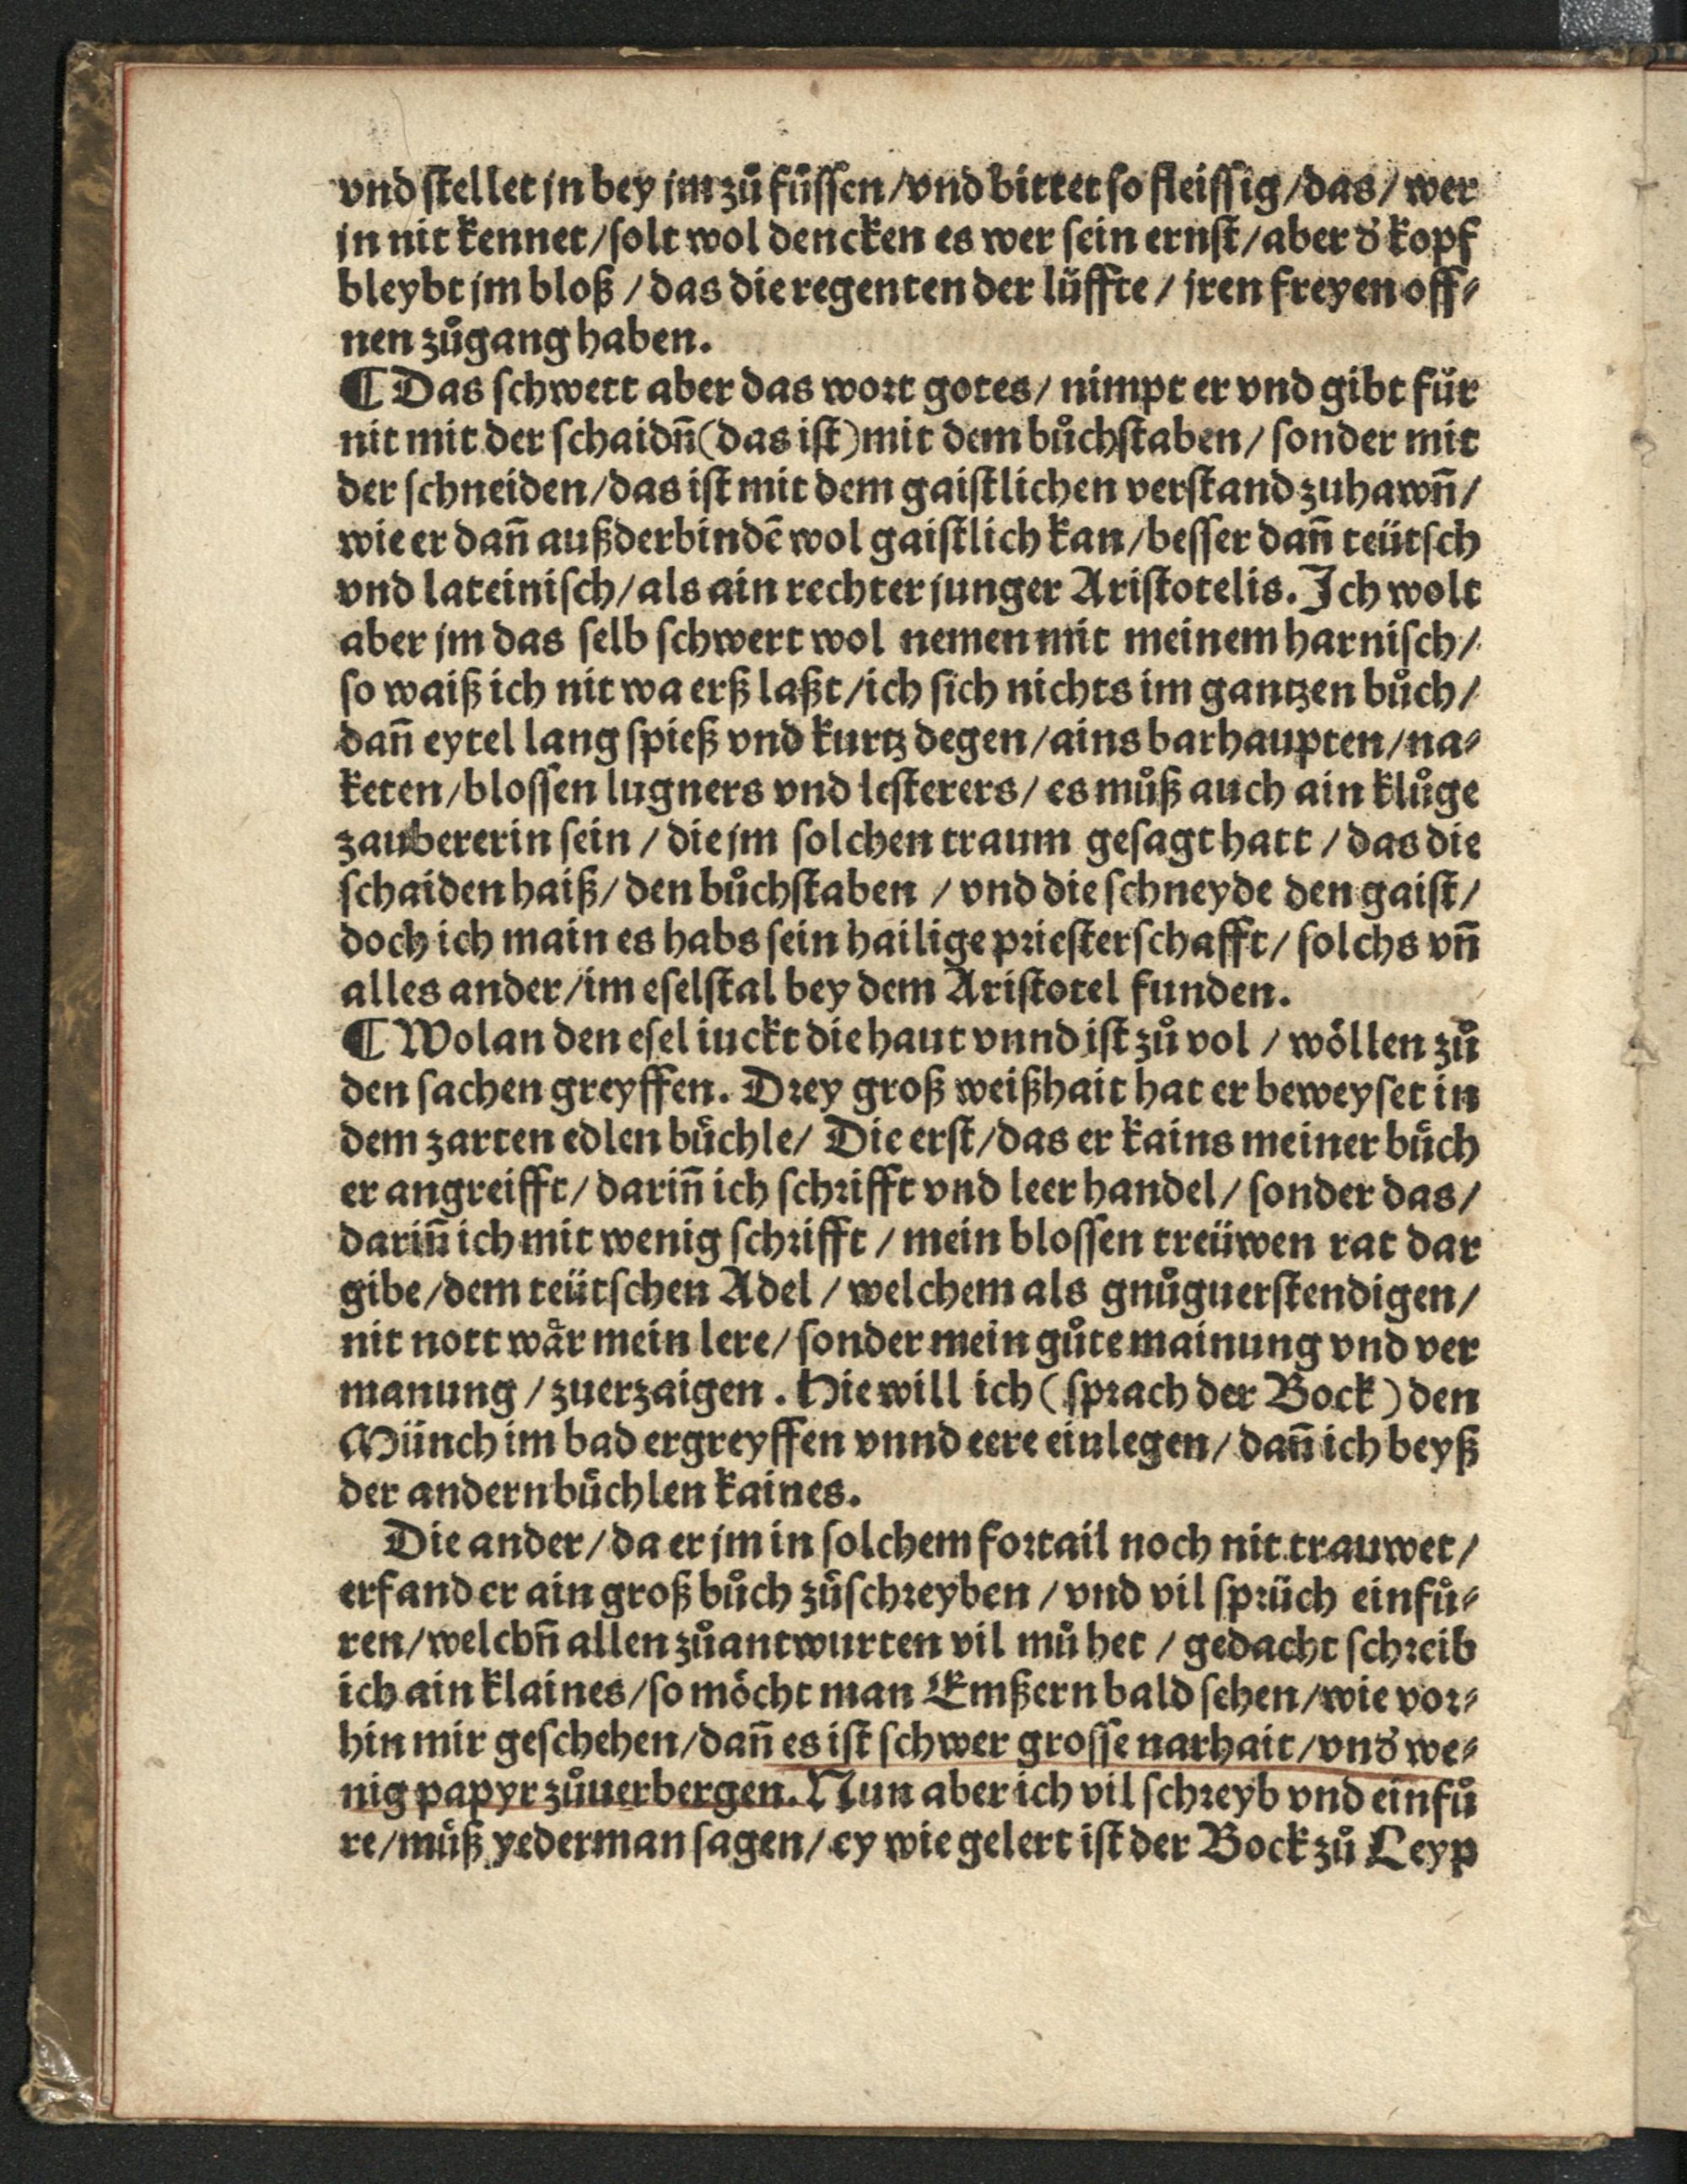 vnd ſtellet jn bey jm zů fůſſen/vnd bittet ſo fleiſſig/das/ wer
jn nit kennet/ſolt wol dencken es wer ſein ernſt/aber d̓ kopf
bleybt jm bloß / das die regenten der lüffte / jren freyen off⸗
nen zůgang haben.
¶ Das ſchwert aber das wort gotes/ nimpt er vnd gibt für
nit mit der ſchaidn̄(das iſt)mit dem bůchſtaben/ ſonder mit
der ſchneiden/das iſt mit dem gaiſtlichen verſtand zuhawn̄/
wie er dañ außderbindē wol gaiſtlich kan/beſſer dañ teütſch
vnd lateiniſch/als ain rechter junger Ariſtotelis. Ich wolt
aber jm das ſelb ſchwert wol nemen mit meinem harniſch/
ſo waiß ich nit wa erß laßt/ich ſich nichts im gantzen bůch/
dañ eytel lang ſpieß vnd kurtz degen/ains barhaupten/na⸗
keten/bloſſen lugners vnd leſterers/ es můß auch ain klůge
zaubererin ſein / die jm ſolchen traum geſagt hatt / das die
ſchaiden haiß/ den bůchſtaben / vnd die ſchneyde den gaiſt/
doch ich main es habs ſein hailige prieſterſchafft/ ſolchs vñ
alles ander/im eſelſtal bey dem Ariſtotel funden.
¶ Wolan den eſel iuckt die haut vnnd iſt zů vol / wöllen zů
den ſachen greyffen. Drey groß weißhait hat er beweyſet in
dem zarten edlen büchle/ Die erſt/das er kains meiner bůch
er angreifft/ dariñ ich ſchrifft vnd leer handel/ ſonder das/
dariñ ich mit wenig ſchrifft / mein bloſſen treüwen rat dar
gibe/dem teütſchen Adel / welchem als gnůguerſtendigen/
nit nott wår mein lere/ ſonder mein gůte mainung vnd ver
manung / zuerzaigen. Hie will ich ( ſprach der Bock ) den
Münch im bad ergreyffen vnnd eere einlegen/ dañ ich beyß
der andern büchlen kaines.
Die ander/ da er jm in ſolchem fortail noch nit trauwet/
erfand er ain groß bůch zůſchreyben / vnd vil ſprüch einfů⸗
ren/welchn̄ allen zůantwurten vil mů het / gedacht ſchreib
ich ain klaines/ſo möcht man Emßern bald ſehen/wie vor⸗
hin mir geſchehen/dañ es iſt ſchwer groſſe narhait/vnd̓ we⸗
nig papyr zůuerbergen. Nun aber ich vil ſchreyb vnd einfů
re/můß yederman ſagen/ ey wie gelert iſt der Bock zů Leyp